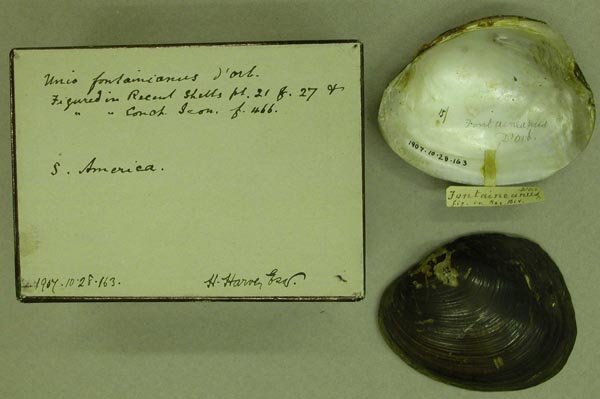 Unio fontainianus d'orb.
Figured in Recent Shells pt. 21 f. 27 &
" " Conch Icon. f. 466.
S. America.
1907.10.28.163.
H. Harvey Esqr.
Fontainianus
D'orb.
1907.10.28.163
Fontaineanus